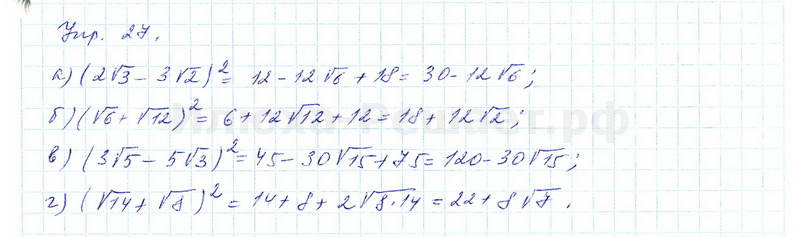 Упр. 27.
а) (2√3 - 3√2)² = 12 - 12√6 + 18 = 30 - 12√6;
б) (√6 + √12)² = 6 + 12√12 + 12 = 18 + 12√2;
в) (3√5 - 5√3)² = 45 - 30√15 + 75 = 120 - 30√15;
г) (√14 + √8)² = 14 + 8 + 2√8·14 = 22 + 8√7.